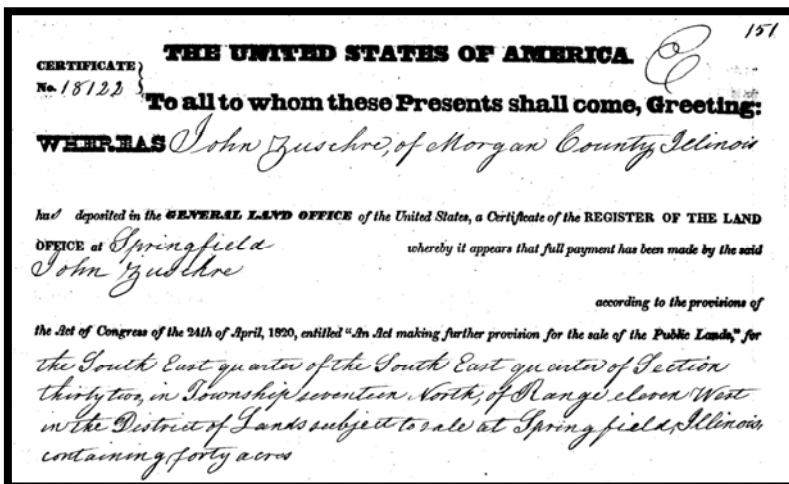 151
THE UNITED STATES OF AMERICA.
CERTIFICATE
No. 18122
To all to whom these Presents shall come, Greeting:
WHEREAS John Zuschre, of Morgan County, Illinois
has deposited in the GENERAL LAND OFFICE of the United States, a Certificate of the REGISTER OF THE LAND
OFFICE at Springfield whereby it appears that full payment has been made by the said
John Zuschre
according to the provisions of
the Act of Congress of the 24th of April, 1820, entitled "An Act making further provision for the sale of the Public Lands," for
the South East quarter of the South East quarter of Section
thirty two, in Township seventeen North, of Range eleven West
in the District of Lands subject to sale at Springfield, Illinois,
containing forty acres